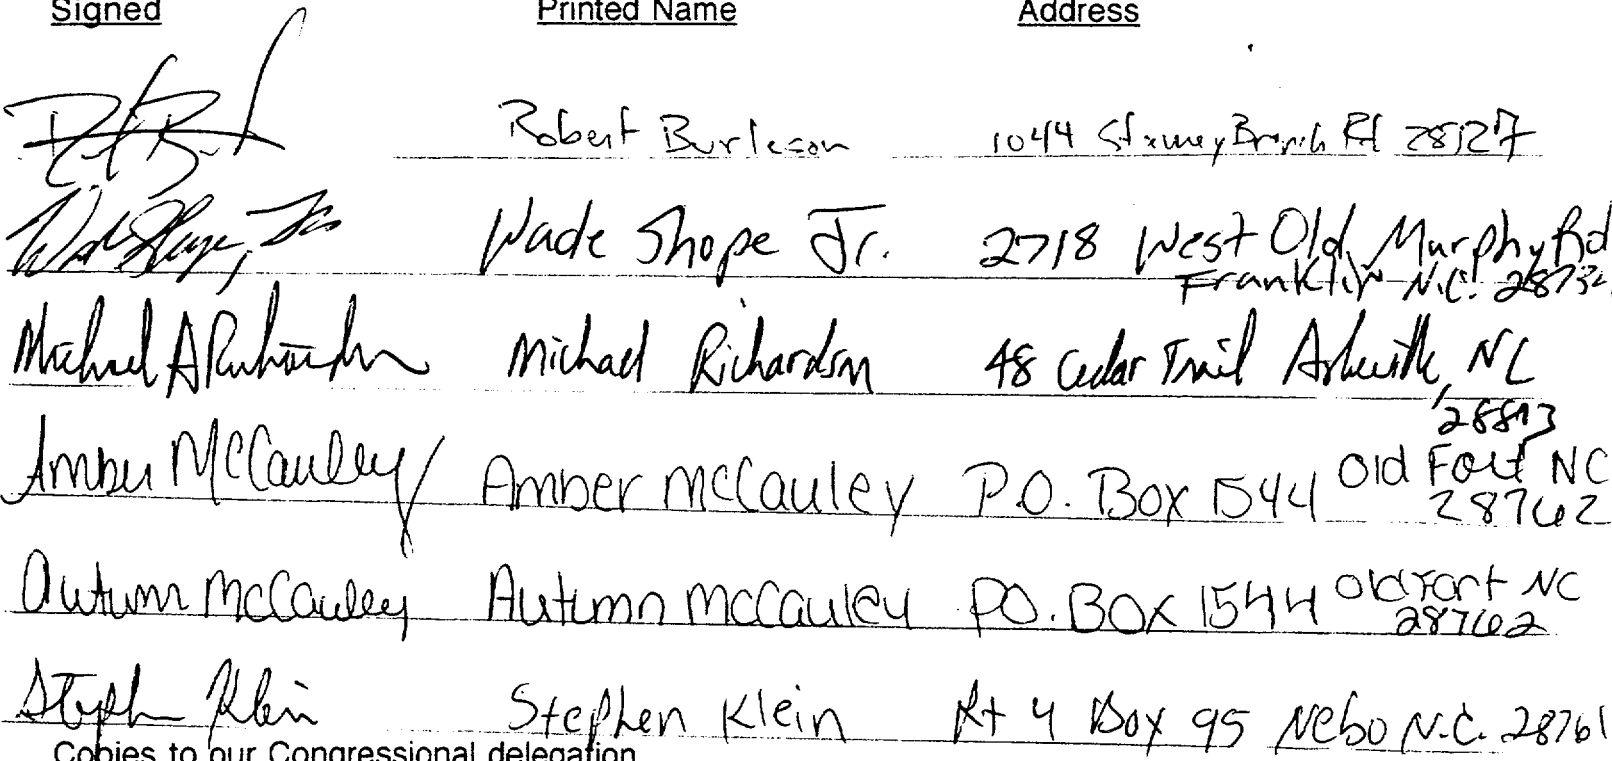 Signed Printed Name Address
Robert Burleson 1044 Branch Rd
Wade Shope, Jr. Wade Shope Jr. 2718 West Old Murphy Rd
Franklin N.C. 28734
Michael A Richardson Michael Richardson 48 Cedar Trail Asheville, NC
28803
Amber McCauley Amber McCauley P.O. Box 1544 Old Fort NC
28762
Autumn McCauley Autumn McCauley PO. BOX 1544 Old Fort NC
28762
Stephen Klein Stephen Klein Rt 4 Box 95 Nebo N.C. 28761
Copies to our Congressional delegation